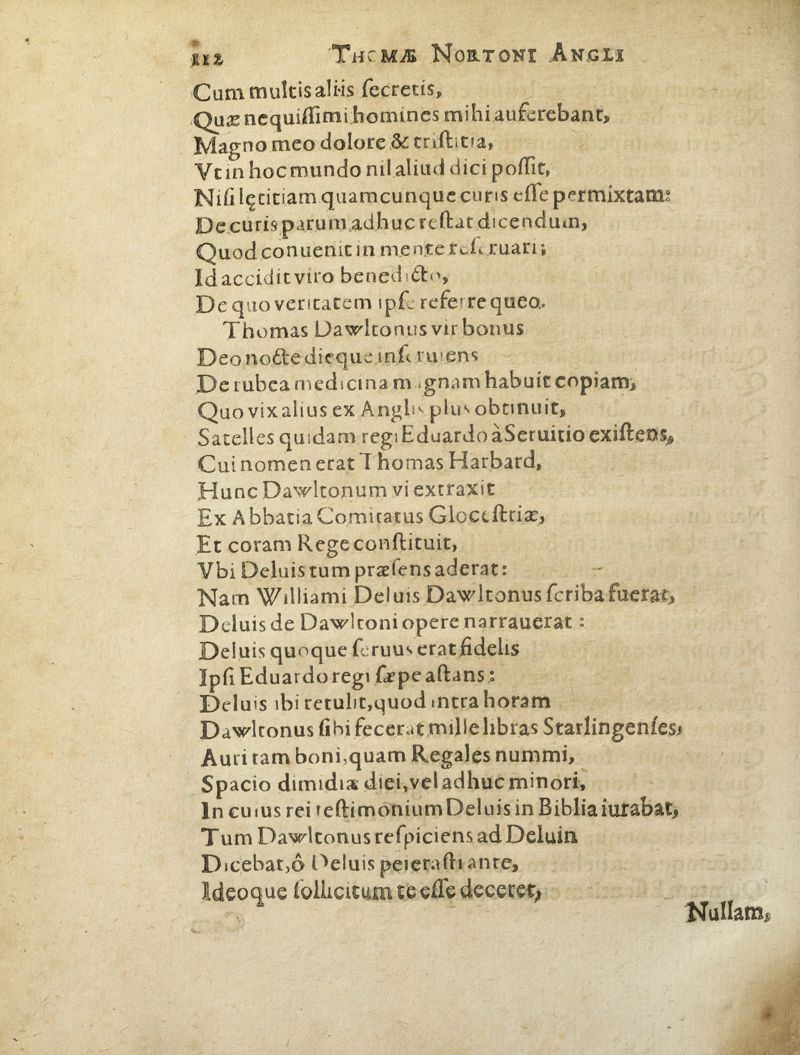 112 THOMÆ NORTONI ANGLI
Cum multis aliis ſecretis,
Quæ nequiſſimi homines mihi auferebant,
Magno meo dolore & triſtitia,
Vt in hoc mundo nil aliud dici poſſit,
Niſi lętitiam quamcunque curis eſſe permixtam:
De curis parum adhuc reſtat dicendum,
Quod conuenit in mente reſeruari;
Id accidit viro benedicto,
De quo veritatem ipſe referre queo.
Thomas Dawltonus vir bonus
Deo nocte dieque inſeruiens
De rubea medicina magnam habuit copiam,
Quo vix alius ex Anglis plus obtinuit,
Satelles quidam regi Eduardo à Seruitio exiſtens,
Cui nomen erat Thomas Harbard,
Hunc Dawltonum vi extraxit
Ex Abbatia Comitatus Gloceſtriæ,
Et coram Rege conſtituit,
Vbi Deluis tum præſens aderat:
Nam Williami Deluis Dawltonus ſcriba fuerat,
Deluis de Dawltoni opere narrauerat:
Deluis quoque ſeruus erat fidelis
Ipſi Eduardo regi ſæpe aſtans:
Deluis ibi retulit, quod intra horam
Dawltonus ſibi fecerat mille libras Starlingenſes,
Auri tam boni, quam Regales nummi,
Spacio dimidiæ diei, vel adhuc minori,
In cuius rei teſtimonium Deluis in Biblia iurabat,
Tum Dawltonus reſpiciens ad Deluin
Dicebat, ô Deluis peieraſti ante,
Ideoque ſollicitum te eſſe deceret,
Nullam,